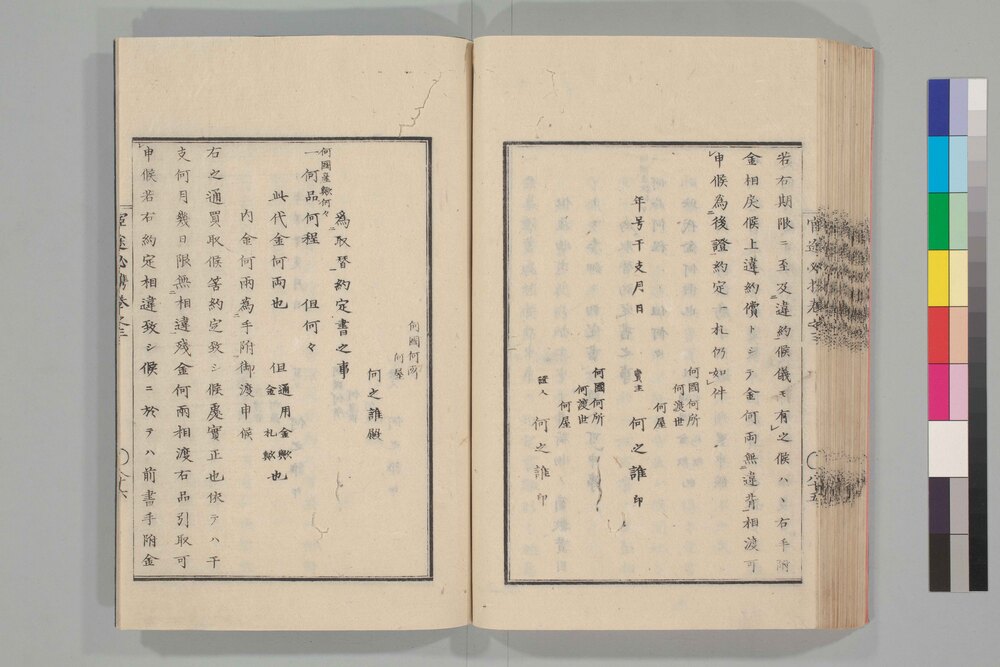 若右期限ニ至及違約候儀モ有之候ハヽ右手附
金相戻候上違約償トシテ金何両無違背相渡可
申候為後證約定一札仍如件
年号干支月日
何國何所
何渡世
何屋
賣主 何之誰 印
何國何所
何渡世
何屋
證人 何之誰 印
何國何所
何屋
何之誰殿
為取替約定書之事
何國産歟何々
一何品何程 但何々
此代金何両也 但通用金歟金札歟也
内金何両為手附御渡申候
右之通買取候筈約定致シ候處實正也然テハ干
支何月幾日限無相違残金何両相渡右品引取可
申候若右約定相違致シ候ニ於テハ前書手附金